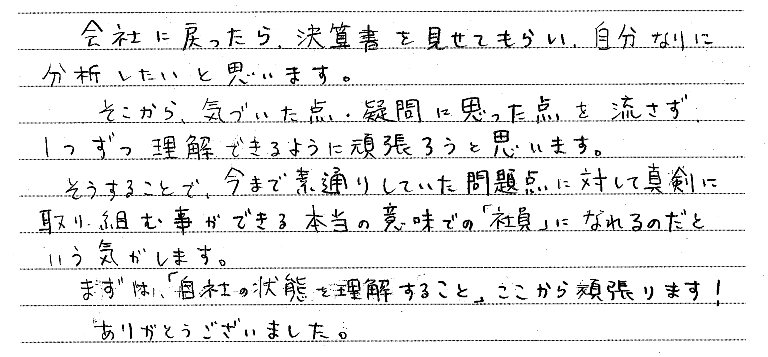 会社に戻ったら、決算書を見せてもらい、自分なりに
分析したいと思います。
そこから、気づいた点・疑問に思った点を流さず、
1つずつ理解できるように頑張ろうと思います。
そうすることで、今まで素通りしていた問題点に対して真剣に
取り組む事ができる本当の意味での「社員」になれるのだと
いう気がします。
まずは、「自社の状態を理解すること」、ここから頑張ります!
ありがとうございました。